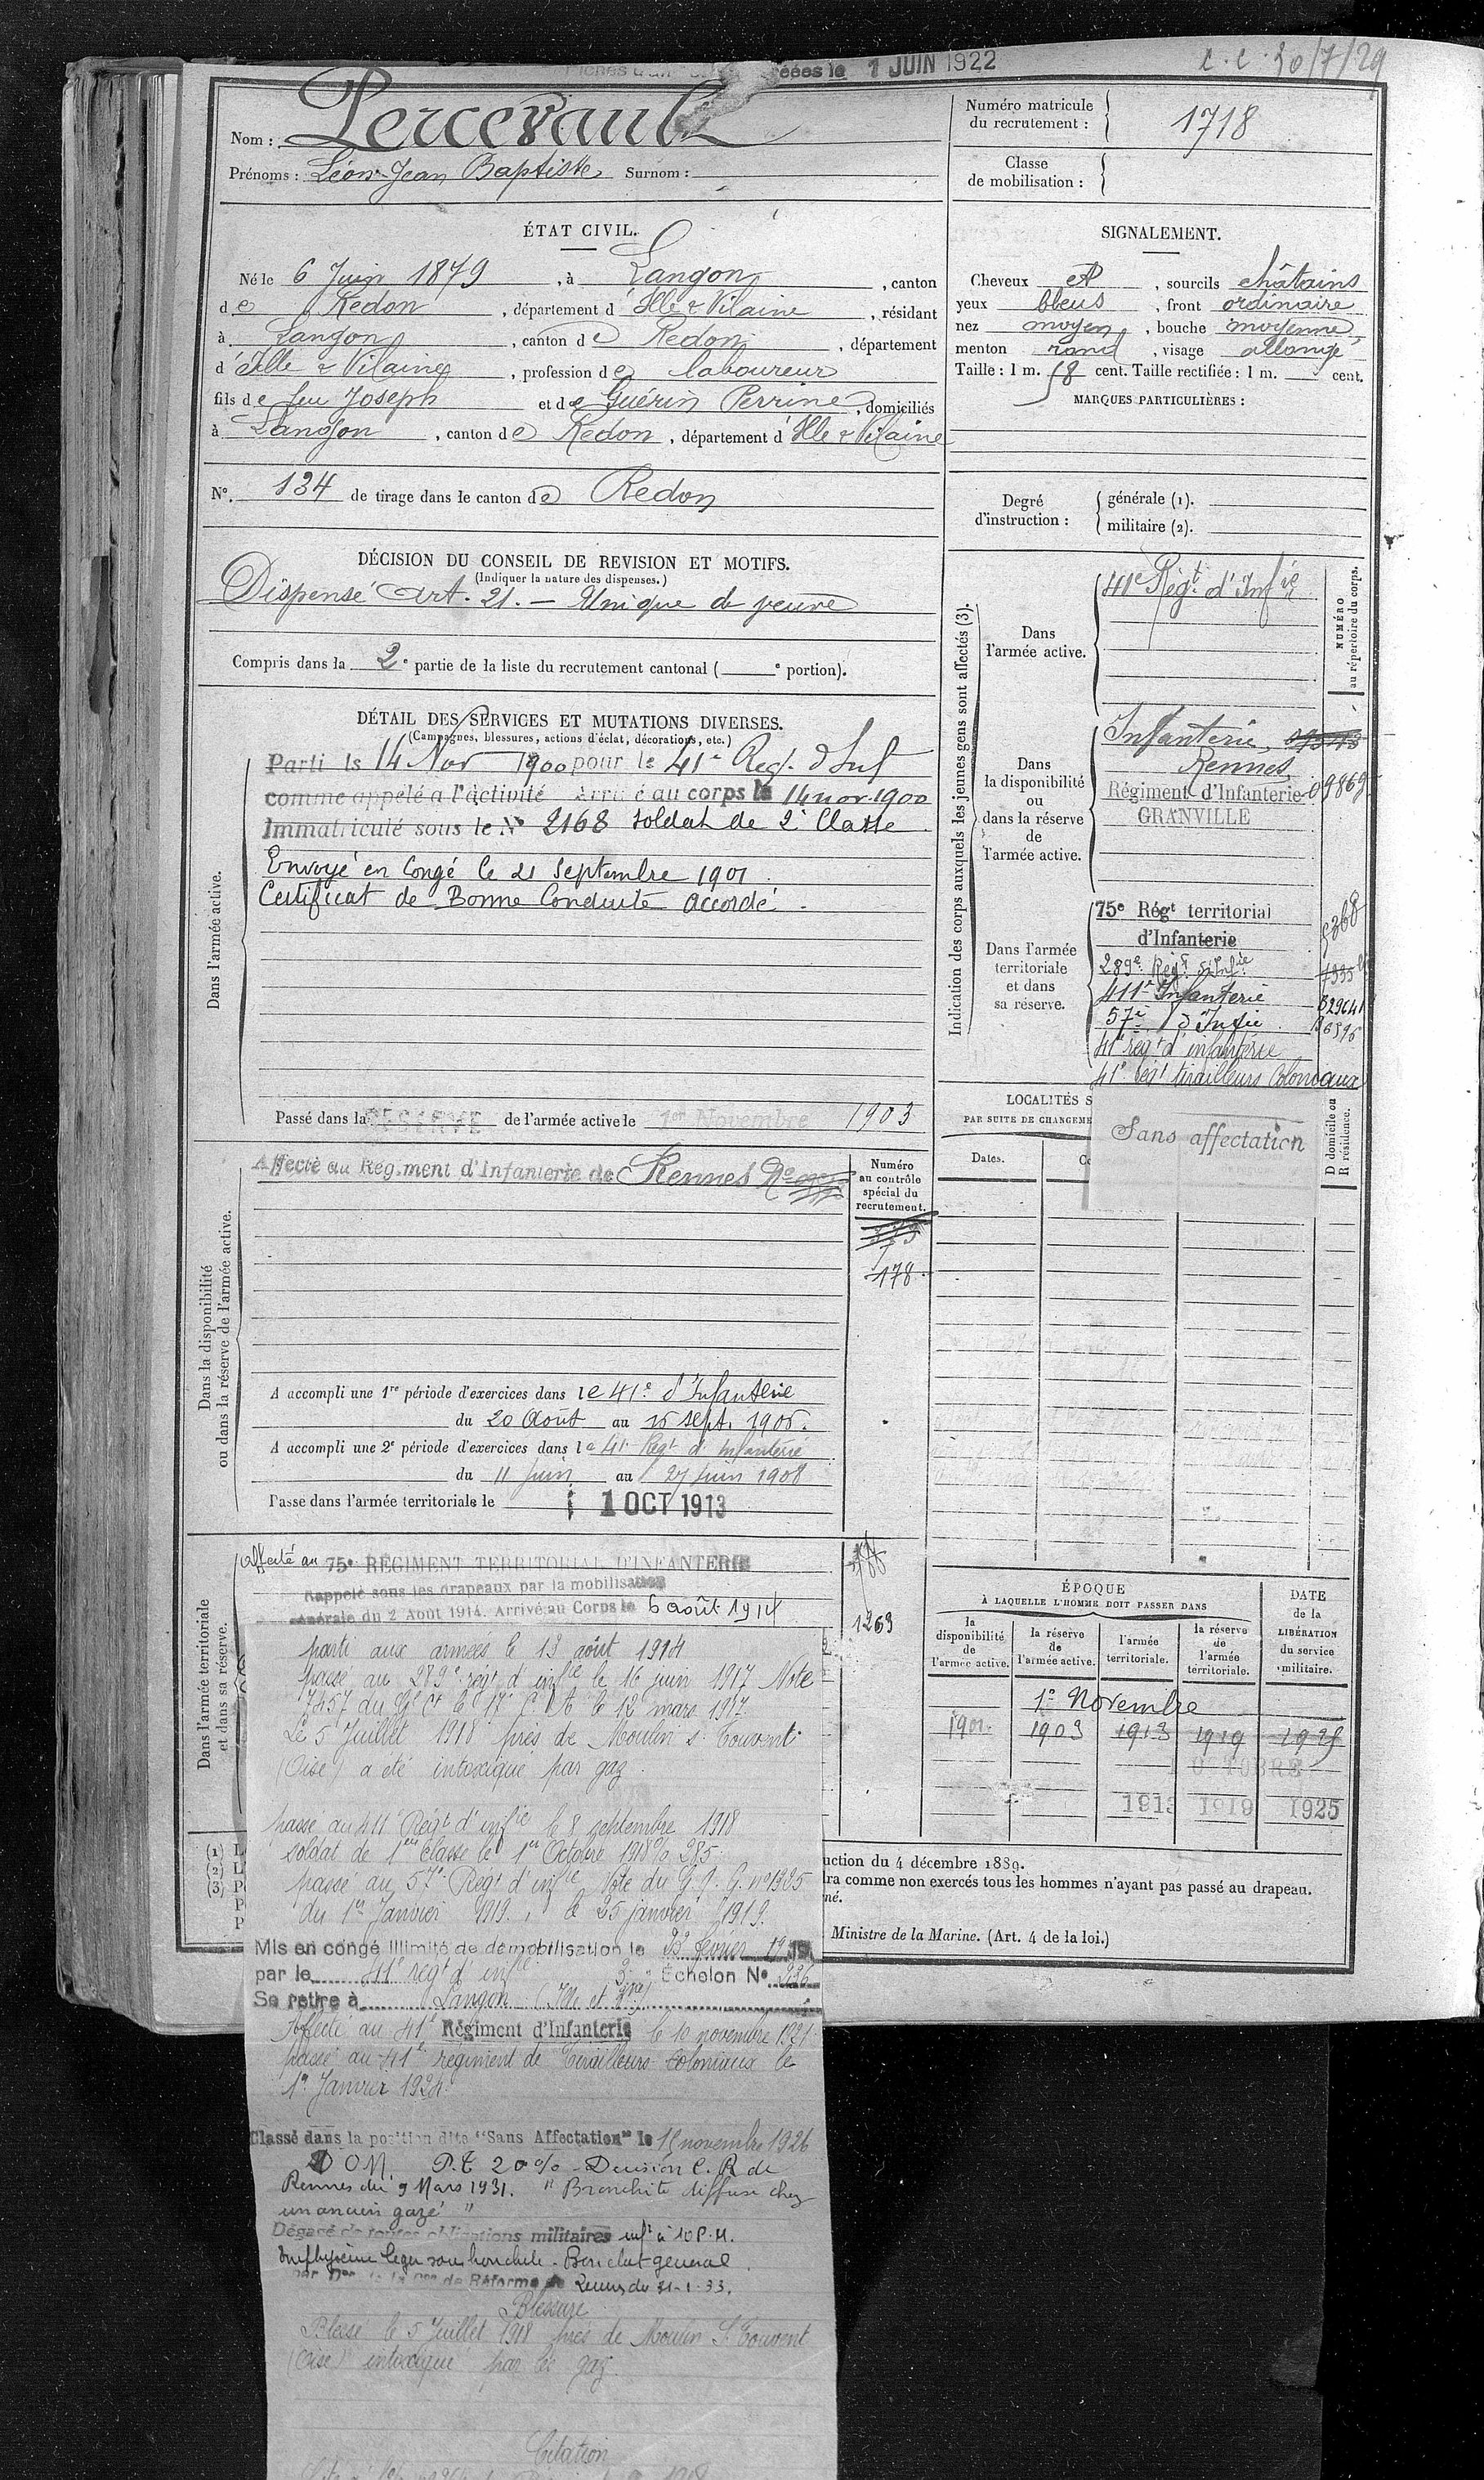 1 JUIN 1922
C.C. 30/7/29
Nom : Percevault
Prénoms : Léon-Jean Baptiste Surnom :
Numéro matricule du recrutement : 1718
Classe de mobilisation :
ÉTAT CIVIL.
Né le 6 Juin 1879, à Langon, canton
de Redon, département d'Ille & Vilaine, résidant
à Langon, canton de Redon, département
d'Ille & Vilaine, profession de laboureur
fils de feu Joseph et de Guérin Perrine, domiciliés
à Langon, canton de Redon, département d'Ille & Vilaine
N°. 134 de tirage dans le canton de Redon
SIGNALEMENT.
Cheveux et, sourcils châtains
yeux bleus, front ordinaire
nez moyen, bouche moyenne
menton rond, visage allongé
Taille : 1 m. 58 cent. Taille rectifiée : 1 m. cent.
MARQUES PARTICULIÈRES :
Degré d'instruction :
générale (1).
militaire (2).
DÉCISION DU CONSEIL DE REVISION ET MOTIFS.
(Indiquer la nature des dispenses.)
Dispensé Art. 21. — Unique de veuve
Compris dans la 2e partie de la liste du recrutement cantonal ( e portion).
DÉTAIL DES SERVICES ET MUTATIONS DIVERSES.
(Campagnes, blessures, actions d'éclat, décorations, etc.)
Dans l'armée active.
Parti le 14 Nov 1900 pour le 41e Reg. d'Inf
comme appelé a l'activité Arrivé au corps le 14 nov. 1900
Immatriculé sous le N° 2168 soldat de 2e Classe
Envoyé en Congé le 21 Septembre 1901.
Certificat de Bonne Conduite accordé.
Passé dans la RESERVE de l'armée active le 1er Novembre 1903
Indication des corps auxquels les jeunes gens sont affectés (3).
NUMÉRO au répertoire du corps.
Dans l'armée active.
41e Régt d'Infie
Dans la disponibilité ou dans la réserve de l'armée active.
Infanterie
Rennes
Régiment d'Infanterie 09869
GRANVILLE
Dans l'armée territoriale et dans sa réserve.
75e Régt territorial
d'Infanterie
5368
289e Régt d'Infie
411e Infanterie
57e d'Infie
41e régt d'infanterie
41e régt tirailleurs Coloniaux
Sans affectation
LOCALITÉS S
PAR SUITE DE CHANGEME
Dates.
D domicile ou R résidence.
Dans la disponibilité ou dans la réserve de l'armée active.
Affecté au Régiment d'Infanterie de Rennes
Numéro au contrôle spécial du recrutement.
178
A accompli une 1re période d'exercices dans le 41e d'Infanterie
du 20 Août au 16 sept. 1906.
A accompli une 2e période d'exercices dans le 41e Régt d'Infanterie
du 11 juin au 27 juin 1908
Passé dans l'armée territoriale le 1 OCT 1913
Dans l'armée territoriale et dans sa réserve.
affecté au 75e RÉGIMENT TERRITORIAL D'INFANTERIE
Rappelé sous les drapeaux par la mobilisation
générale du 2 Août 1914. Arrivé au Corps le 6 août 1914
1263
parti aux armées le 13 août 1914
passé au 289e régt d'infie le 16 juin 1917 Note
7457 du Gl Ct le 17e C.A. le 12 mars 1917
Le 5 Juillet 1918 près de Moulin s. Touvent
(Oise) a été intoxiqué par gaz.
passé au 411e Régt d'infie le 8 septembre 1918
soldat de 1ère classe le 1er Octobre 1918 % 285
passé au 57e Régt d'infie Note du G.Q.G. n° 1925
du 1er Janvier 1919, le 25 janvier 1919.
Mis en congé illimité de démobilisation le février 1919
par le 41e régt d'infie 3e Echelon N° 236
Se retire à Langon (Ille et Vne)
Affecté au 41e Régiment d'Infanterie le 10 novembre 1921
passé au 41e régiment de Tirailleurs Coloniaux le
1er Janvier 1924.
Classé dans la position dite "Sans Affectation" le 15 novembre 1926
D.O.M. P.T. 20% - Décision C.R. de
Rennes du 9 Mars 1931. "Bronchite diffuse chez
un ancien gazé"
Dégagé de toutes obligations militaires inft à 10 P.H.
Emphysème léger sans bronchite - Bon état général.
par Don de la Con de Réforme de Rennes du 31-1-33.
Blessure
Blessé le 5 Juillet 1918 près de Moulin S. Touvent
(Oise) intoxiqué par les gaz.
Citation
ÉPOQUE
À LAQUELLE L'HOMME DOIT PASSER DANS
DATE de la LIBÉRATION du service militaire.
la disponibilité de l'armée active.
la réserve de l'armée active.
l'armée territoriale.
la réserve de l'armée territoriale.
1er Novembre
1901 1903 1913 1919 1925
OCTOBRE
1913 1919 1925
uction du 4 décembre 1889.
dra comme non exercés tous les hommes n'ayant pas passé au drapeau.
né.
Ministre de la Marine. (Art. 4 de la loi.)
(1) L
(2) L
(3) P
P
P